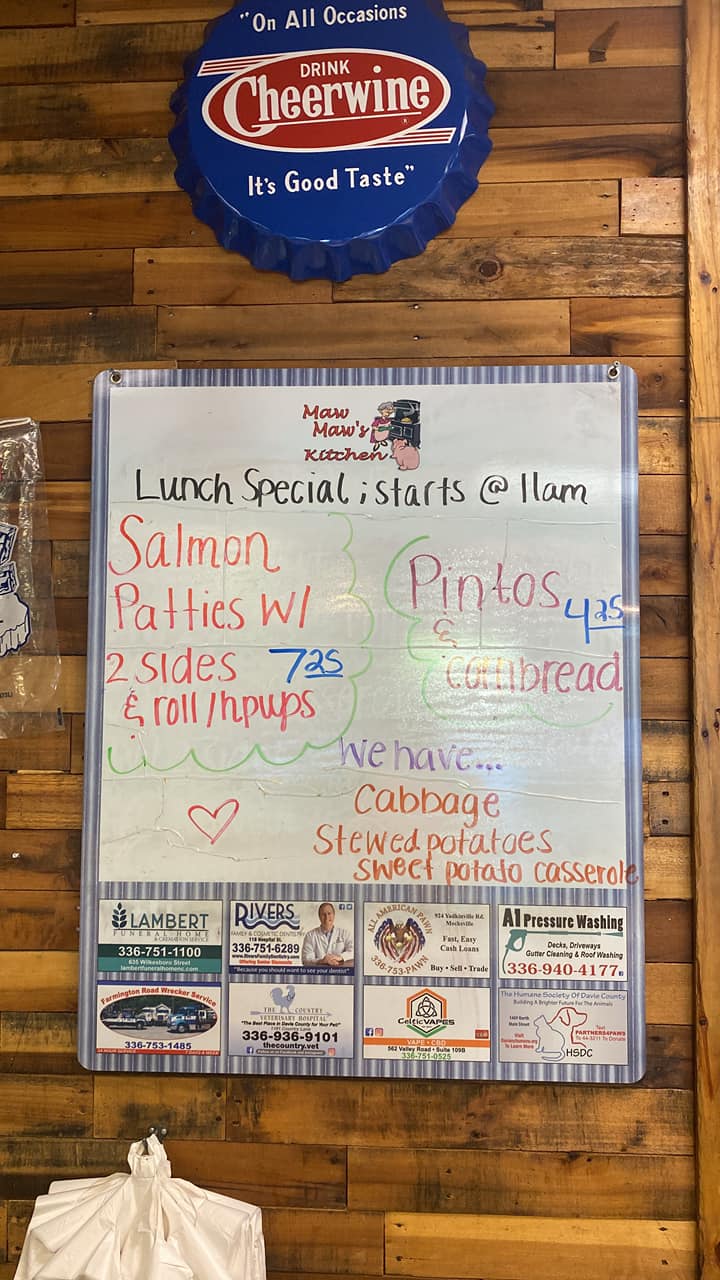 "On All Occasions
DRINK
Cheerwine
It's Good Taste"
Maw
Maw's
Kitchen
Lunch Special ; starts @ 11am
Salmon
Patties W/
2 sides 7.25
& roll/hpups
Pintos 4.25
&
cornbread
We have...
Cabbage
Stewed potatoes
sweet potato casserole
LAMBERT
FUNERAL HOME
& CREMATION SERVICE
336-751-1100
635 Wilkesboro Street
lambertfuneralhomenc.com
RIVERS
FAMILY & COSMETIC DENTISTRY
118 Hospital St.
336-751-6289
www.RiversFamilyDentistry.com
"Because you should want to see your dentist"
ALL AMERICAN PAWN
336-753-PAWN
924 Yadkinville Rd.
Mocksville
Fast, Easy
Cash Loans
Buy • Sell • Trade
A1 Pressure Washing
Decks, Driveways
Gutter Cleaning & Roof Washing
336-940-4177
Farmington Road Wrecker Service
336-753-1485
24 HOUR SERVICE 7 DAYS A WEEK
THE COUNTRY
VETERINARY HOSPITAL
"The Best Place in Davie County for Your Pet!"
336-936-9101
thecountry.vet
CelticVAPES
VAPE • CBD
562 Valley Road • Suite 109B
336-751-0525
The Humane Society Of Davie County
Building A Brighter Future For The Animals
Main Street
Visit
To Learn More
Text
PARTNERS4PAWS
To 44-3211 To Donate
HSDC